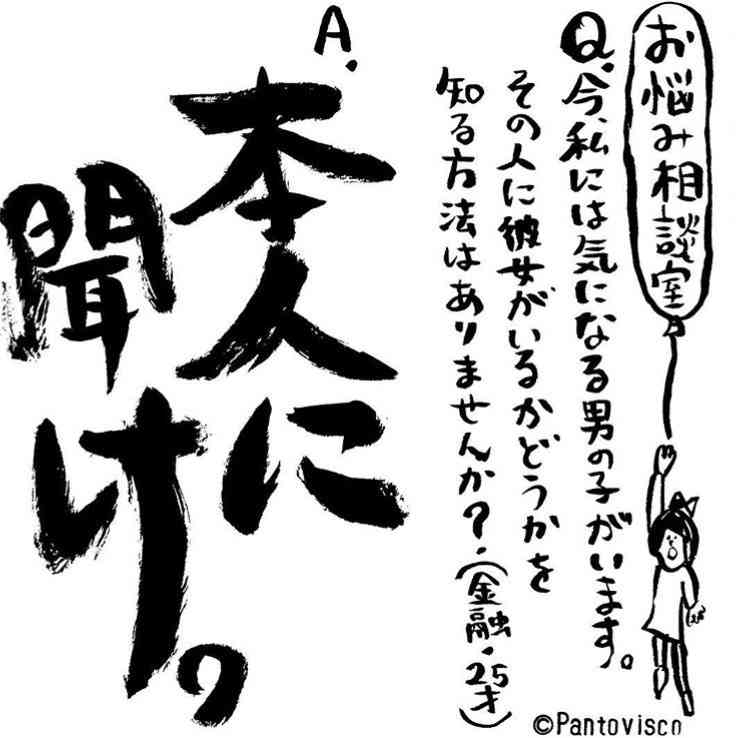 お悩み相談室
Q.今、私には気になる男の子がいます。
その人に彼女がいるかどうかを
知る方法はありませんか?.(金融・25才)
A.
本人に
聞け。
©Pantovisco